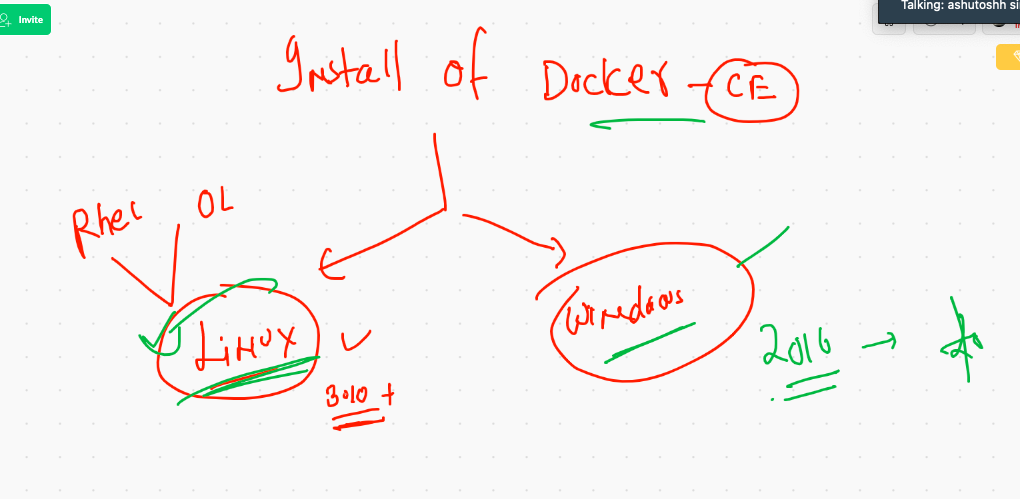 Invite
Talking: ashutoshh si
Install of Docker - CE
Rhel OL
LiNUX
Windows
3.10 +
2016 →